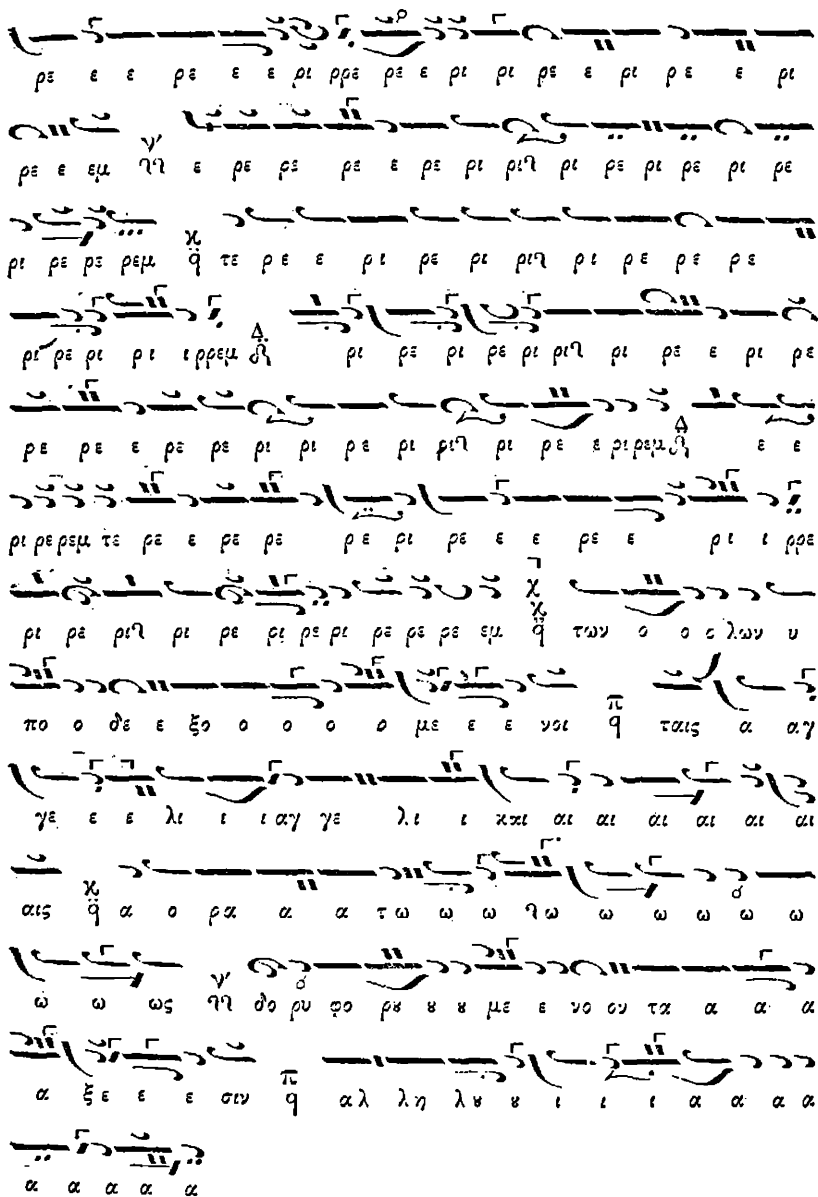 ρε ε ε ρε ε ε ρι ρρε ρε ε ρι ρι ρε ε ρι ρε ε ρι
ρε ε εμ ν' ε ρε ρε ρε ε ρε ρι ριϞ ρι ρε ρι ρε ρι ρε
ρι ρε ρε ρεμ χ q τε ρε ε ρι ρε ρι ριϞ ρι ρε ρε ρε
ρι ρε ρι ρι ι ρρεμ Δ ρι ρε ρι ρε ρι ριϞ ρι ρε ε ρι ρε
ρε ρε ε ρε ρε ρι ρι ρε ρι ριϞ ρι ρε ε ρι ρεμ Δ ε ε
ρι ρε ρεμ τε ρε ε ρε ρε ρε ρι ρε ε ε ρε ε ρι ι ρρε
ρι ρε ριϞ ρι ρε ρι ρε ρι ρε ρε ρε εμ χ χ q των ο ο ο λων υ
πο ο δε ε ξο ο ο ο ο με ε ε νοι π q ταις α αγ
γε ε ε λι ι ι αγ γε λι ι και αι αι αι αι αι αι
αις χ q α ο ρα α α τω ω ω Ϟω ω ω ω ω ω
ω ω ως ν' δο ρυ φο ρȣ ȣ ȣ με ε νο ον τα α α α
α ξε ε ε σιν π q αλ λη λȣ ȣ ι ι ι α α α α
α α α α α